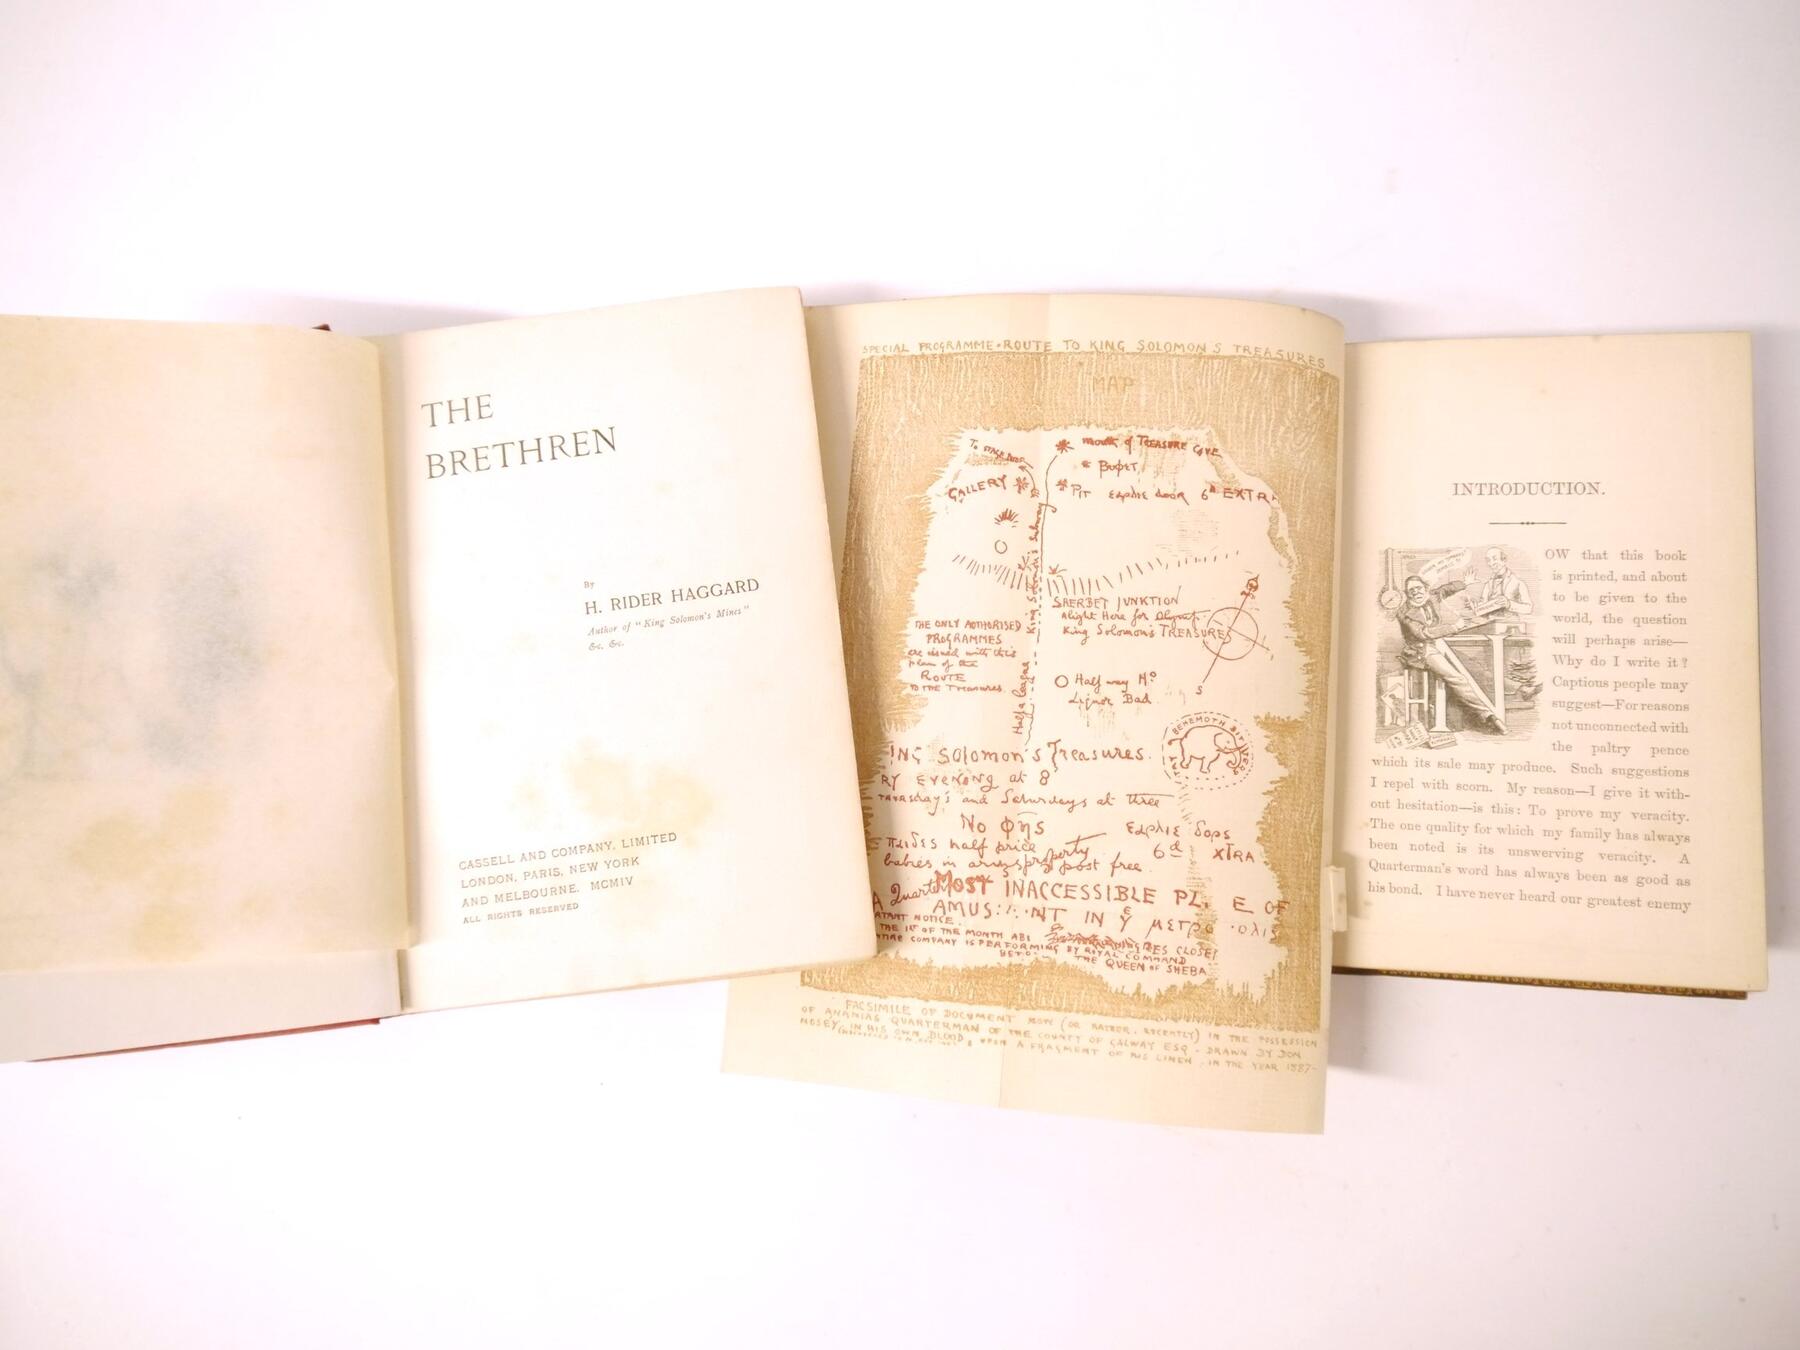 THE
BRETHREN
By
H. RIDER HAGGARD
Author of "King Solomon's Mines"
&c. &c.
CASSELL AND COMPANY, LIMITED
LONDON, PARIS, NEW YORK
AND MELBOURNE. MCMIV
ALL RIGHTS RESERVED
SPECIAL PROGRAMME • ROUTE TO KING SOLOMON'S TREASURES
MAP
To STAGE DOOR
mouth of TREASURE CAVE
GALLERY
PIT
door 6d EXTRA
King Solomon's Subway
SHERBET JUNKTION
alight Here for
King Solomon's TREASURES
THE ONLY AUTHORISED
PROGRAMMES
are issued with this
plan of the
ROUTE
TO THE TREASURES.
Half way Ho
Liquor Bad
Half a league
S
BEHEMOTH
ING Solomon's Treasures.
RY Evening at 8
Thursday's and Saturdays at three
No φηs
εαρλιε δορς
παιδες half price
6d xTRA
babies in arms post free.
property
A Quarter
MOST INACCESSIBLE PL E OF
AMUS NT IN
THE 1st OF THE MONTH
NTIRE COMPANY IS PERFORMING BY ROYAL COMMAND
THE QUEEN OF SHEBA
FACSIMILE OF DOCUMENT NOW (OR RATHER, RECENTLY) IN THE POSSESSION
OF ANANIAS QUARTERMAN OF THE COUNTY OF GALWAY ESQ - DRAWN BY DON
MOSEY IN HIS OWN BLOOD UPON A FRAGMENT OF HIS LINEN, IN THE YEAR 1887-
INTRODUCTION.
NOW that this book
is printed, and about
to be given to the
world, the question
will perhaps arise—
Why do I write it?
Captious people may
suggest—For reasons
not unconnected with
the paltry pence
which its sale may produce. Such suggestions
I repel with scorn. My reason—I give it with-
out hesitation—is this: To prove my veracity.
The one quality for which my family has always
been noted is its unswerving veracity. A
Quarterman's word has always been as good as
his bond. I have never heard our greatest enemy